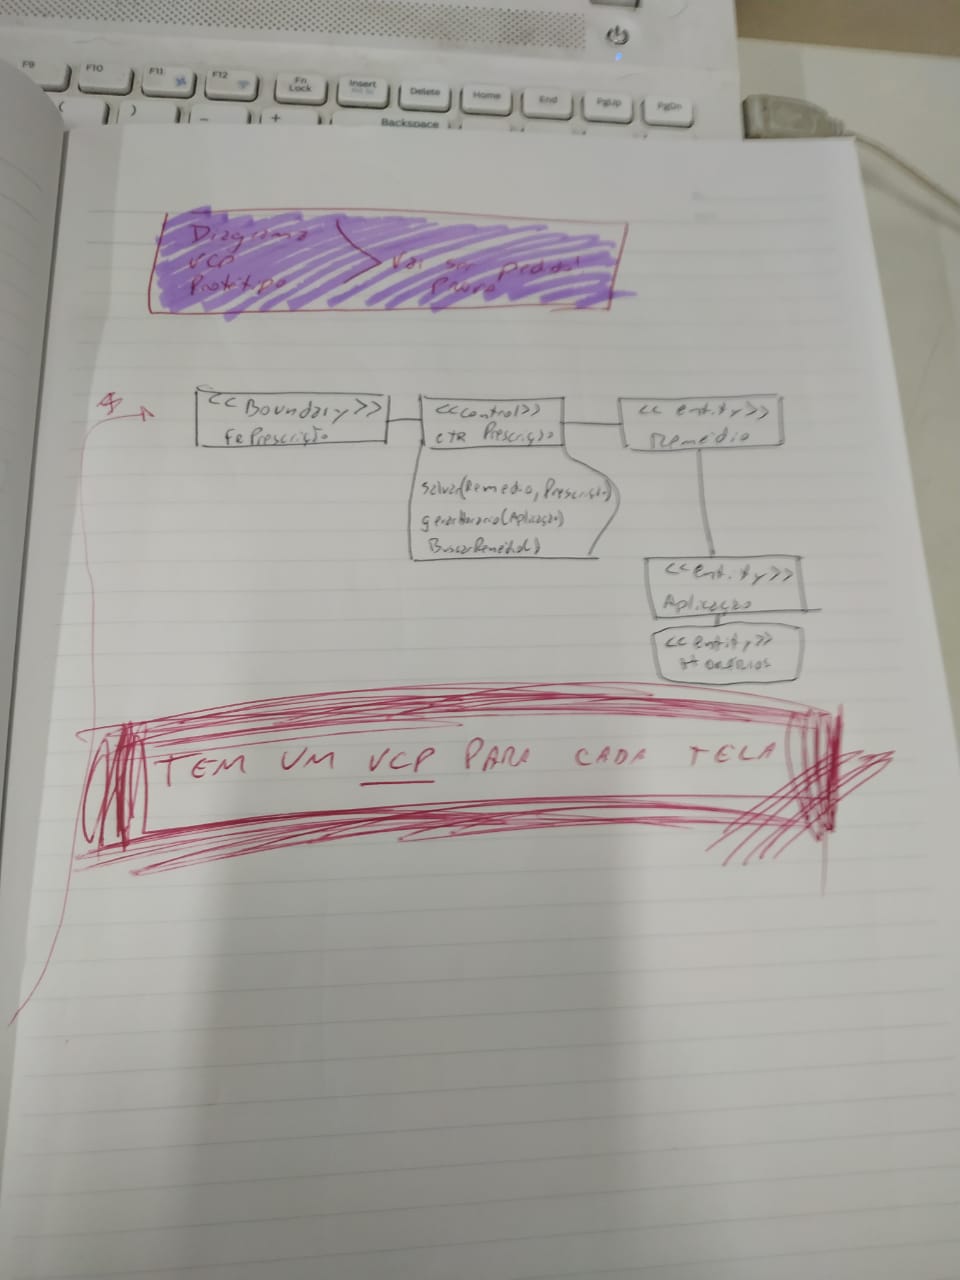 F9
F10
F11
F12
Fn Lock
Insert
Delete
Home
End
PgUp
PgDn
(
)
-
+
Backspace
Diagrama
VCP
Protótipo
Vai ser pedido!
Prova
<<Boundary>>
fePrescrição
<<control>>
ctr Prescrição
salvar(Remedio, Prescrição)
gerarHorario(Aplicação)
BuscarRemedio()
<<entity>>
Remédio
<<entity>>
Aplicação
<<entity>>
HORÁRIOS
TEM UM VCP PARA CADA TELA